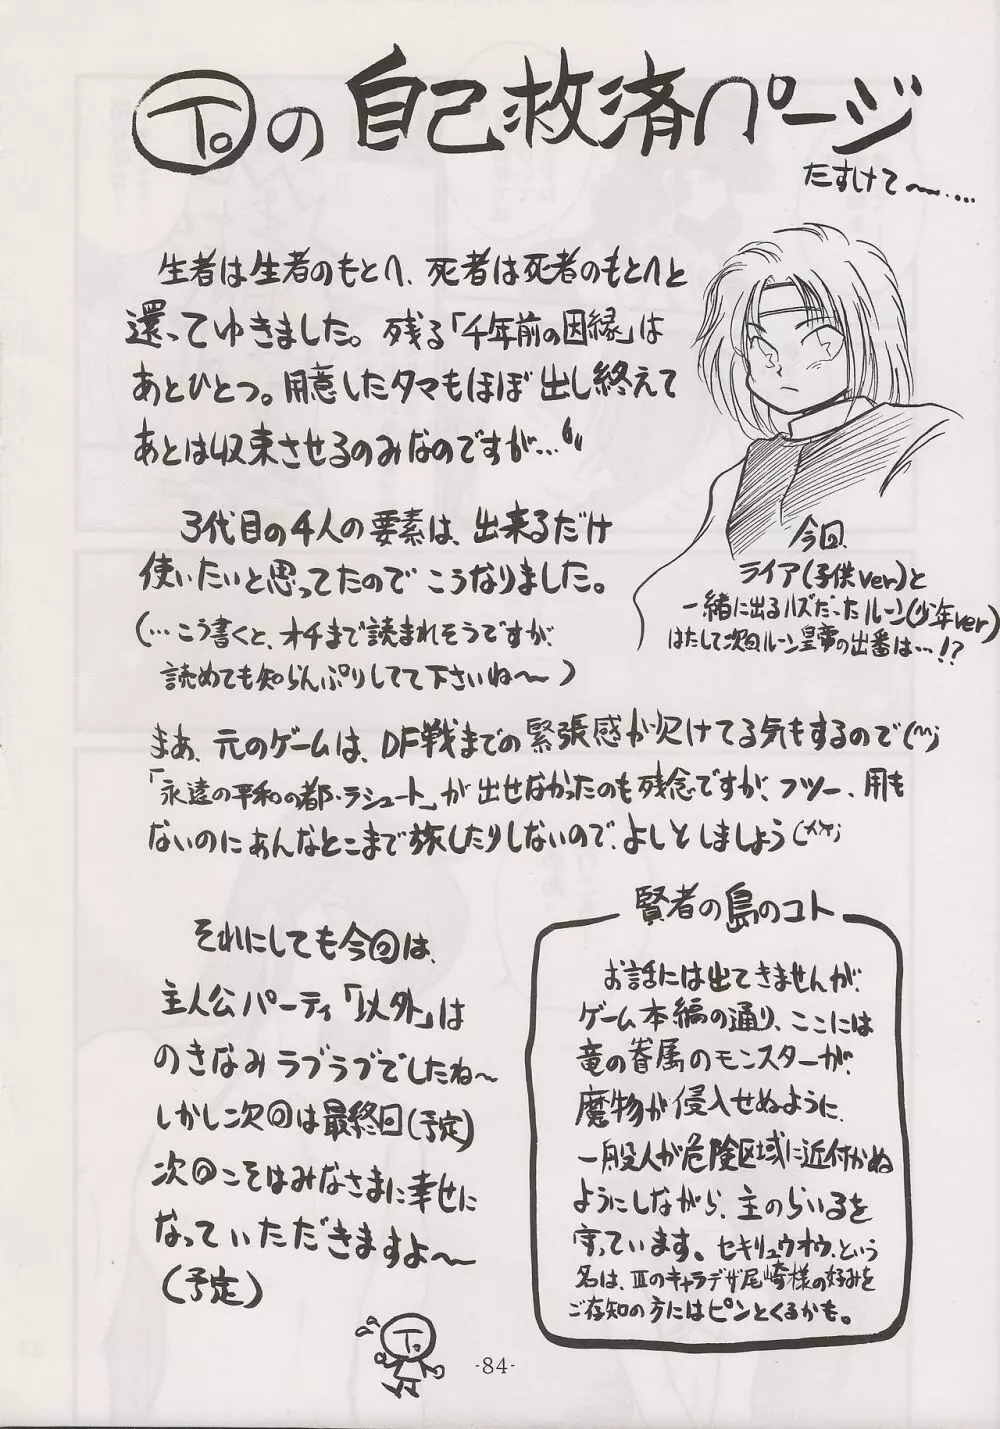 To の 自己救済ページ
たすけて〜....
生者は生者のもとへ、死者は死者のもとへと
還ってゆきました。残る「千年前の因縁」は
あとひとつ。用意したタマもほぼ出し終えて
あとは収束させるのみなのですが…
3代目の4人の要素は、出来るだけ
使いたいと思ってたのでこうなりました。
(…こう書くと、オチまで読まれそうですが、
読めても知らんぷりしてて下さいね〜)
今回、
ライア(子供ver)と
一緒に出るハズだったルーン(少年ver)
はたして次回ルーン皇帝の出番は…!?
まあ、元のゲームは、DF戦までの緊張感が欠けてる気もするので(^^;)
「永遠の平和の都・ラシュート」が出せなかったのも残念ですが、フツー、用も
ないのにあんなとこまで旅したりしないので、よしとしましょう(^^;)
それにしても今回は、
主人公パーティ「以外」は
のきなみラブラブでしたね〜
しかし次回は最終回(予定)
次回こそはみなさまに幸せに
なっていただきますよ〜
(予定)
To
賢者の島のコト
お話には出てきませんが、
ゲーム本編の通り、ここには
竜の眷属のモンスターが、
魔物が侵入せぬように、
一般人が危険区域に近付かぬ
ようにしながら、主のらいるを
守っています。セキリュウオウ、という
名は、IIIのキャラデザ尾崎様の好みを
ご存知の方にはピンとくるかも。
-84-